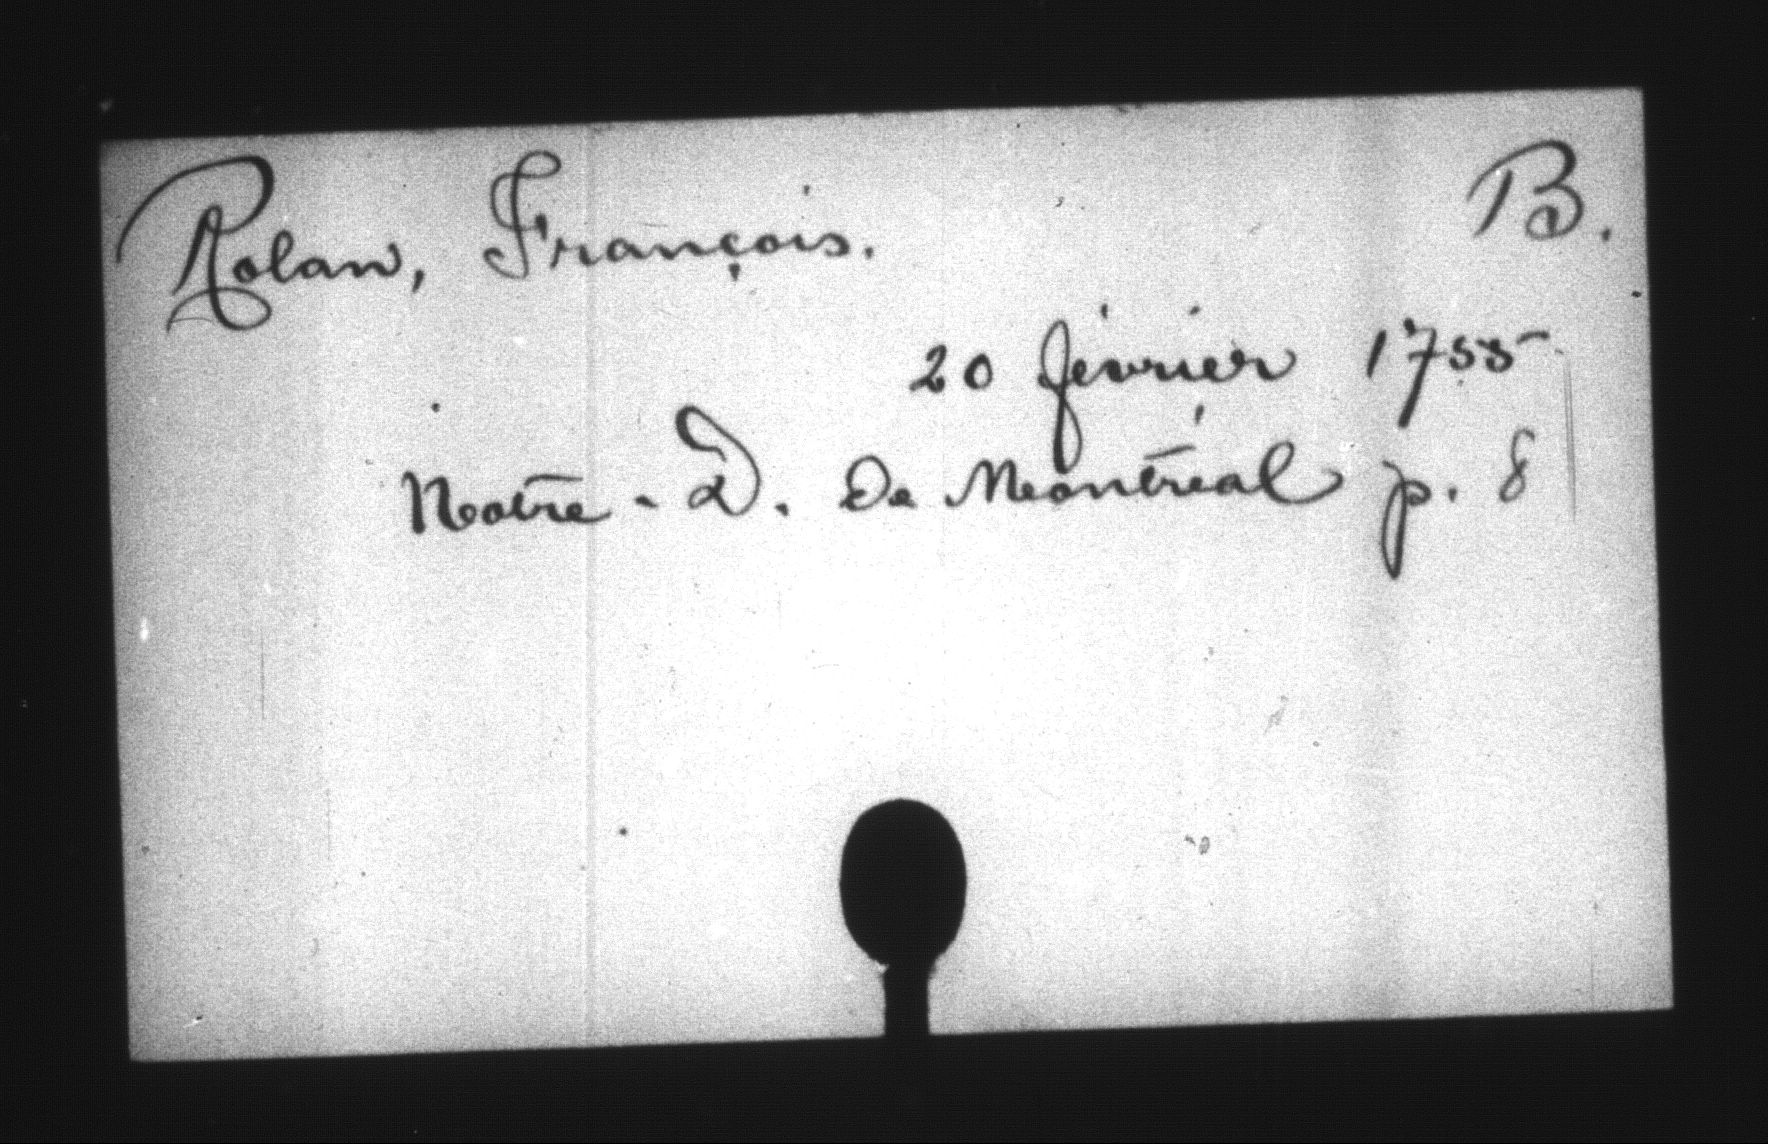 Rolan, François. B.
20 février 1755
Notre-D. de Montréal p. 8